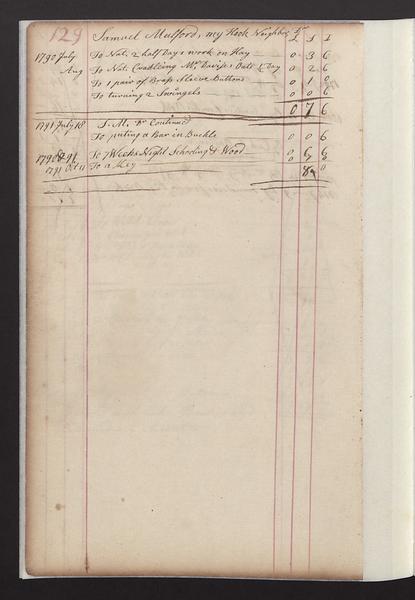 129 Samuel Mulford, my Neck Neighbor Dr £ s d
1790 July To Nat. 2 half Days work on Hay 0 3 6
Aug To Nat. Cradling Mr Davises Oats ½ Day 0 2 6
To 1 pair of Brass Sleeve Buttons 0 1 0
To turning 2 Swingels 0 0 6
0 7 6
1791 July 18 S. M. Dr Continued
To puting a Bar in Buckle 0 0 6
1790 & 91 To 7 Weeks Night Schooling & Wood 0 6 6
1791 Oct 11 To a Key 0
8 0